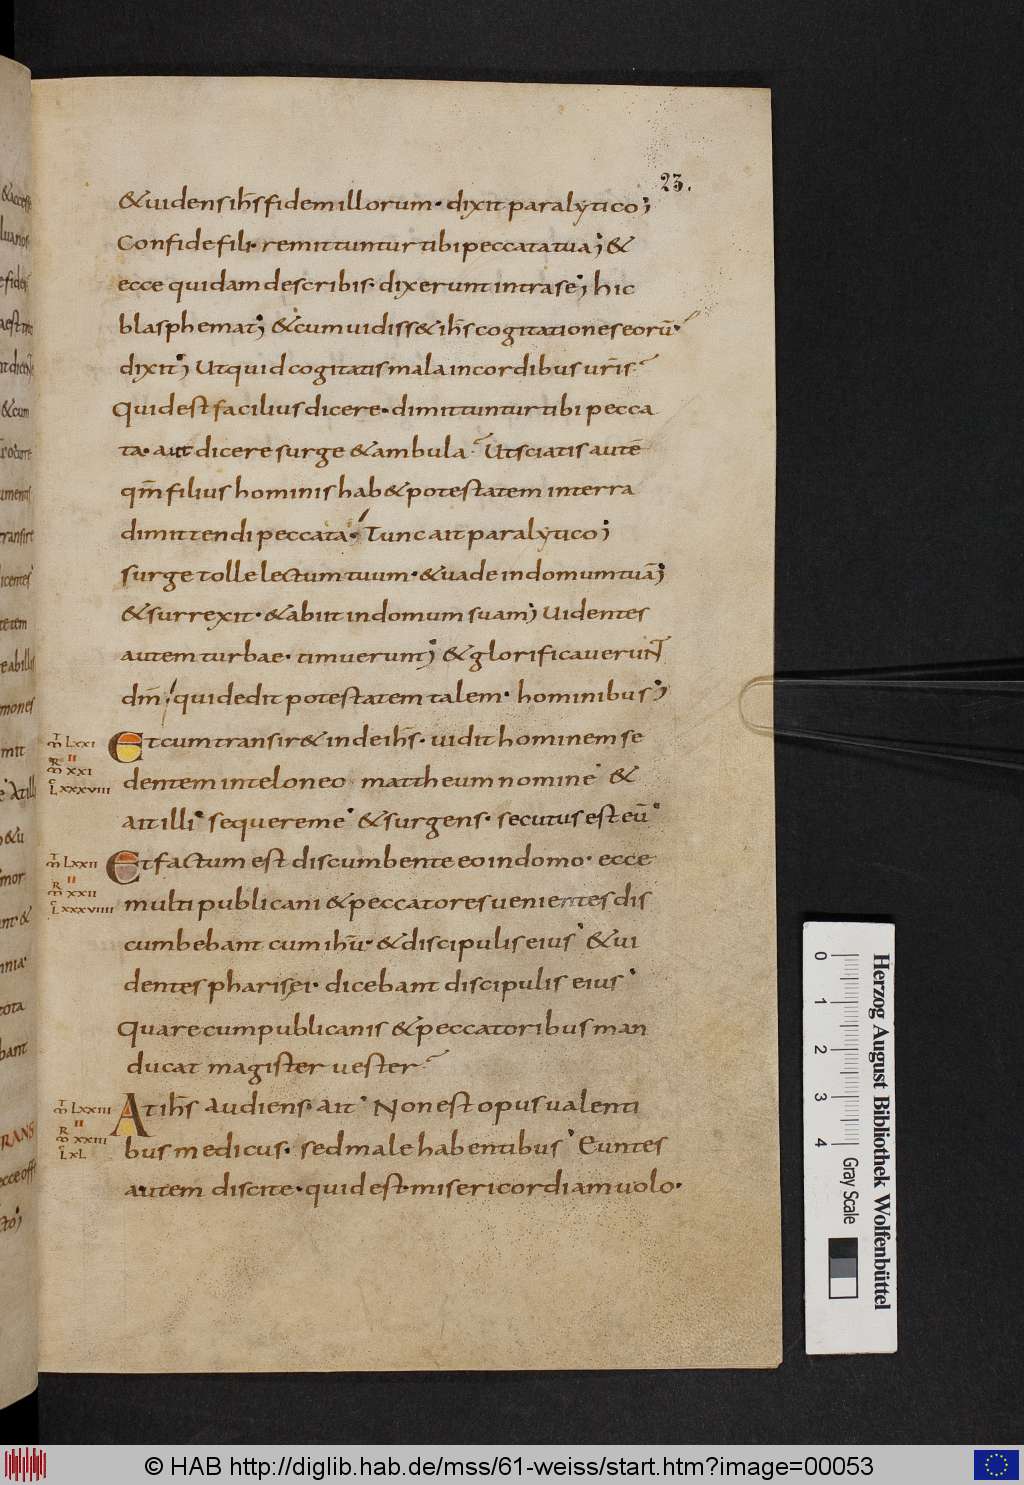 23.
&uidens ihs̄ fidem illorum· dixit paralytico;
Confide fili· remittuntur tibi peccata tua; &
ecce quidam de scribis· dixerunt intra se; hic
blasphemat; & cum uidiss& ihs̄ cogitationes eorū·
dixit; Ut quid cogitatis mala in cordibus ur̄is
Quid est facilius dicere· dimittuntur tibi pecca
ta· aut dicere surge & ambula· Ut sciatis autē
qm̄ filius hominis hab& potestatem in terra
dimittendi peccata· Tunc ait paralytico;
surge tolle lectum tuum· & uade in domum tuā;
& surrexit· & abiit in domum suam; Uidentes
autem turbae· timuerunt; & glorificauerunt
dm̄ qui dedit potestatem talem· hominibus;
Et cum transir& inde ihs̄· uidit hominem se
dentem in teloneo mattheum nomine & 
ait illi sequere me & surgens· secutus est eū
Et factum est discumbente eo in domo· ecce
multi publicani & peccatores uenientes dis
cumbebant cum ihū· & discipulis eius & ui
dentes pharisęi· dicebant discipulis eius
Quare cum publicanis & peccatoribus man
ducat magister uester
At ihs̄ audiens· ait Non est opus ualenti
bus medicus· sed male habentibus Euntes
autem discite· quid est· misericordiam uolo·
LXXI
II
XXI
LXXXVIII
LXXII
II
XXII
LXXXVIIII
LXXIII
II
XXIII
LXL
0 1 2 3 4
Gray Scale
Herzog August Bibliothek Wolfenbüttel
© HAB http://diglib.hab.de/mss/61-weiss/start.htm?image=00053